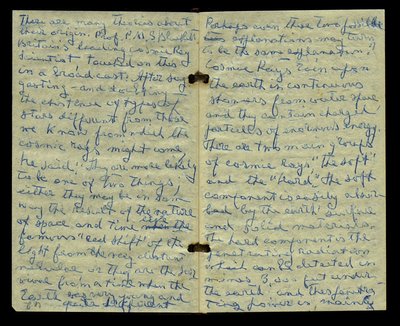 There are many theories about
their origin. Prof. P.M.S. Blackett
Britain's leading cosmic Ray
scientist touched on this
in a broadcast. After sug
gesting - and doubting -
the existence of types of
stars different from those
we know from which the
cosmic rays might come
he said, "They are more likely
to be one of two things,
either they may be in some
way the result of the nature
of space and time
famous "red shift" of the
light from the very distant
nebulae or they are the sur
vival from a time when the
Earth was very young and
quite different
Perhaps even these two
explanations may turn
to be the same explanation."
Cosmic Rays rain upon
the earth in continuous
showers from outer space
and they contain charged
particles of enormous energy.
There are two main groups
of cosmic rays "the soft"
and the "hard". The soft
component is easily absor
bed by the earth's surface
and solid materials.
The hard component is the
penetrating radiation
which can be detected in
mines 3,000 feet under
the earth and this penetra
ting power is mainly